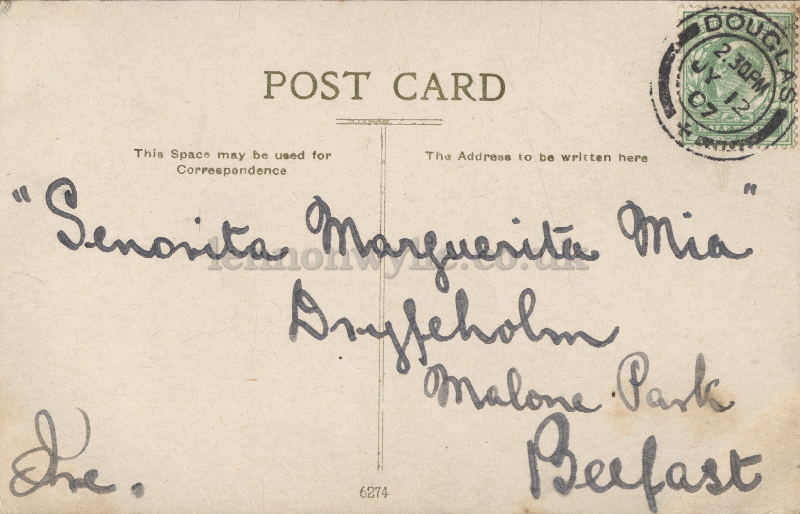 POST CARD
DOUGLAS
2.30PM
JY 12
07
This Space may be used for
Correspondence
The Address to be written here
"Senorita Marguerita Mia"
lennonwylie.co.uk
Dryfeholm
Malone Park
Belfast
Ire.
6274